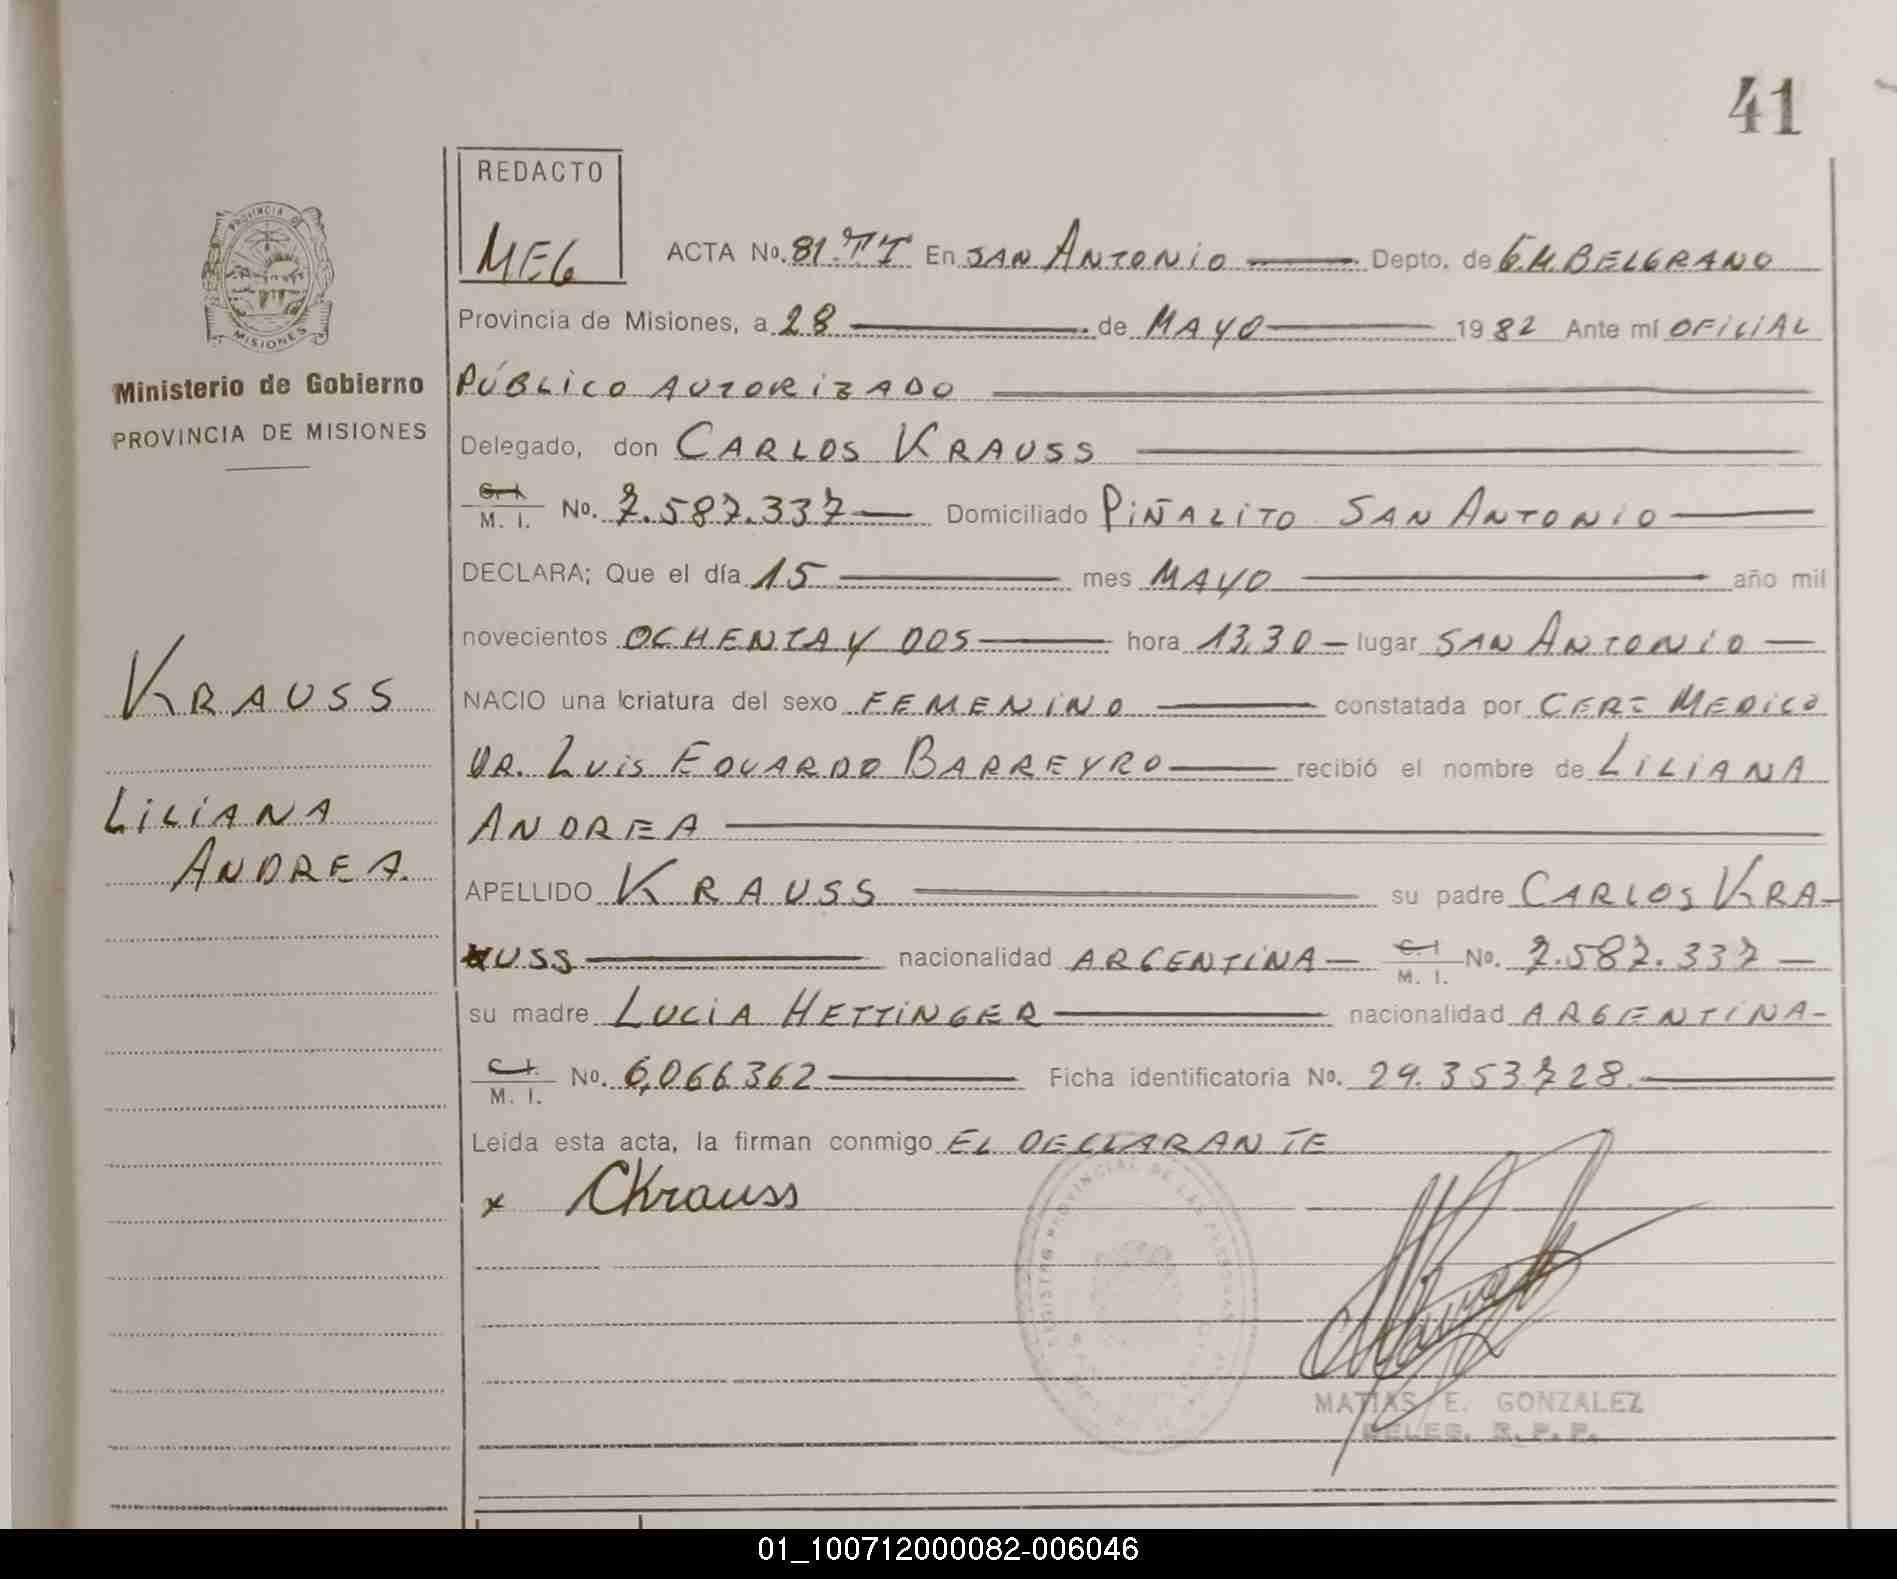 41
REDACTO
MEG
ACTA No. 81. TI En SAN ANTONIO Depto. de G.M. BELGRANO
PROVINCIA DE
MISIONES
Provincia de Misiones, a 28 de MAYO 1982 Ante mí OFICIAL
Ministerio de Gobierno
PÚBLICO AUTORIZADO
PROVINCIA DE MISIONES
Delegado, don CARLOS KRAUSS
C. I.
M. I. No. 7.587.337 Domiciliado PIÑALITO SAN ANTONIO
DECLARA; Que el día 15 mes MAYO año mil
novecientos OCHENTA Y DOS hora 13,30 lugar SAN ANTONIO
KRAUSS
NACIO una criatura del sexo FEMENINO constatada por CERT MEDICO
DR. LUIS EDUARDO BARREYRO recibió el nombre de LILIANA
LILIANA
ANDREA
ANDREA.
APELLIDO KRAUSS su padre CARLOS KRA-
USS nacionalidad ARGENTINA C. I. M. I. No. 7.587.337
su madre LUCIA HETTINGER nacionalidad ARGENTINA
C. I.
M. I. No. 6,066362 Ficha identificatoria No. 29.353728.
Leída esta acta, la firman conmigo EL DECLARANTE
x CKrauss
REGISTRO PROVINCIAL DE LAS PERSONAS
MATIAS E. GONZALEZ
DELEG. R. P. P.
01_100712000082-006046